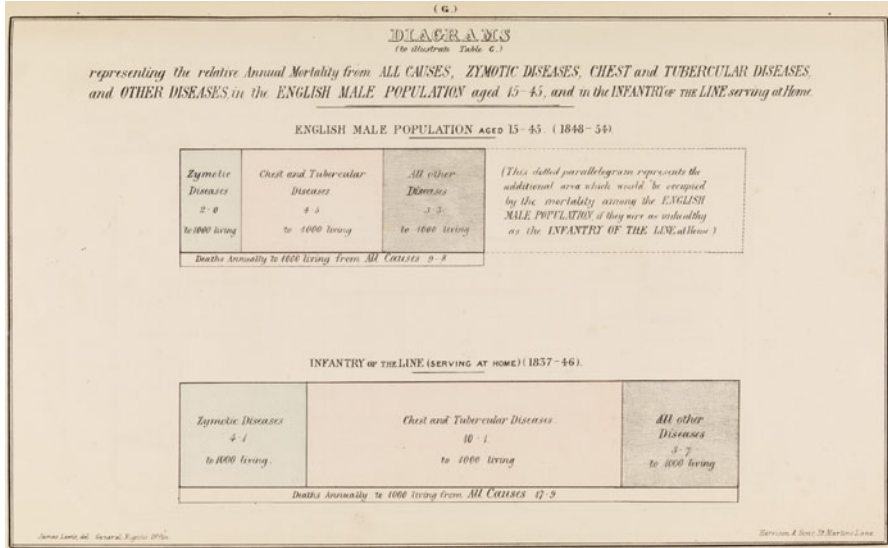 (G.)
DIAGRAMS
(to illustrate Table G.)
representing the relative Annual Mortality from ALL CAUSES, ZYMOTIC DISEASES, CHEST and TUBERCULAR DISEASES,
and OTHER DISEASES, in the ENGLISH MALE POPULATION aged 15-45, and in the INFANTRY OF THE LINE serving at Home.
ENGLISH MALE POPULATION AGED 15-45. (1848-54).
Zymotic
Diseases
2·0
to 1000 living
Chest and Tubercular
Diseases
4·5
to 1000 living
All other
Diseases
3·3
to 1000 living
(This dotted parallelogram represents the
additional area which would be occupied
by the mortality among the ENGLISH
MALE POPULATION, if they were as unhealthy
as the INFANTRY OF THE LINE at Home)
Deaths Annually to 1000 living from All Causes 9·8
INFANTRY OF THE LINE (SERVING AT HOME) (1837-46).
Zymotic Diseases
4·1
to 1000 living.
Chest and Tubercular Diseases.
10·1
to 1000 living
All other
Diseases
3·7
to 1000 living
Deaths Annually to 1000 living from All Causes 17·9
James Lewis, del. General Register Office
Harrison & Sons, St Martins Lane